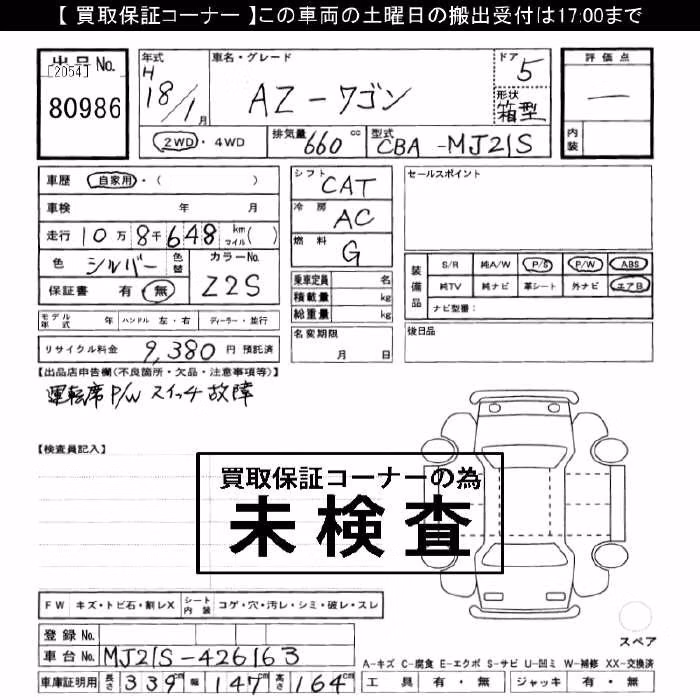 【 買取保証コーナー 】この車両の土曜日の搬出受付は17:00まで
出品No.
[2054]
80986
年式
H
18/1月
車名・グレード
AZ-ワゴン
ドア
5
形状
箱型
評価点
—
内装
2WD ・ 4WD
排気量 660 cc
型式 CBA -MJ21S
車歴 自家用・( )
車検 年 月
走行 10万8千648 km マイル( )
色 シルバー 色替
カラーNo. Z2S
保証書 有・無
モデル年式 年 ハンドル 左・右 ディーラー・並行
リサイクル料金 9,380 円 預託済
シフト CAT
冷房 AC
燃料 G
乗車定員 名
積載量 kg
総重量 kg
名変期限
月 日
セールスポイント
装備品
S/R 純A/W P/S P/W ABS
純TV 純ナビ 革シート 外ナビ エアB
ナビ型番:
後日品
【出品店申告欄(不良箇所・欠品・注意事項等)】
運転席P/W スイッチ故障
【検査員記入】
買取保証コーナーの為
未検査
FW キズ・トビ石・割レX シート内装 コゲ・穴・汚レ・シミ・破レ・スレ
登録No.
車台No. MJ21S-426163
車庫証明用 長さ 339cm 幅 147cm 高さ 164cm
スペア
A-キズ C-腐食 E-エクボ S-サビ U-凹ミ W-補修 XX-交換済
工具 有・無 ジャッキ 有・無